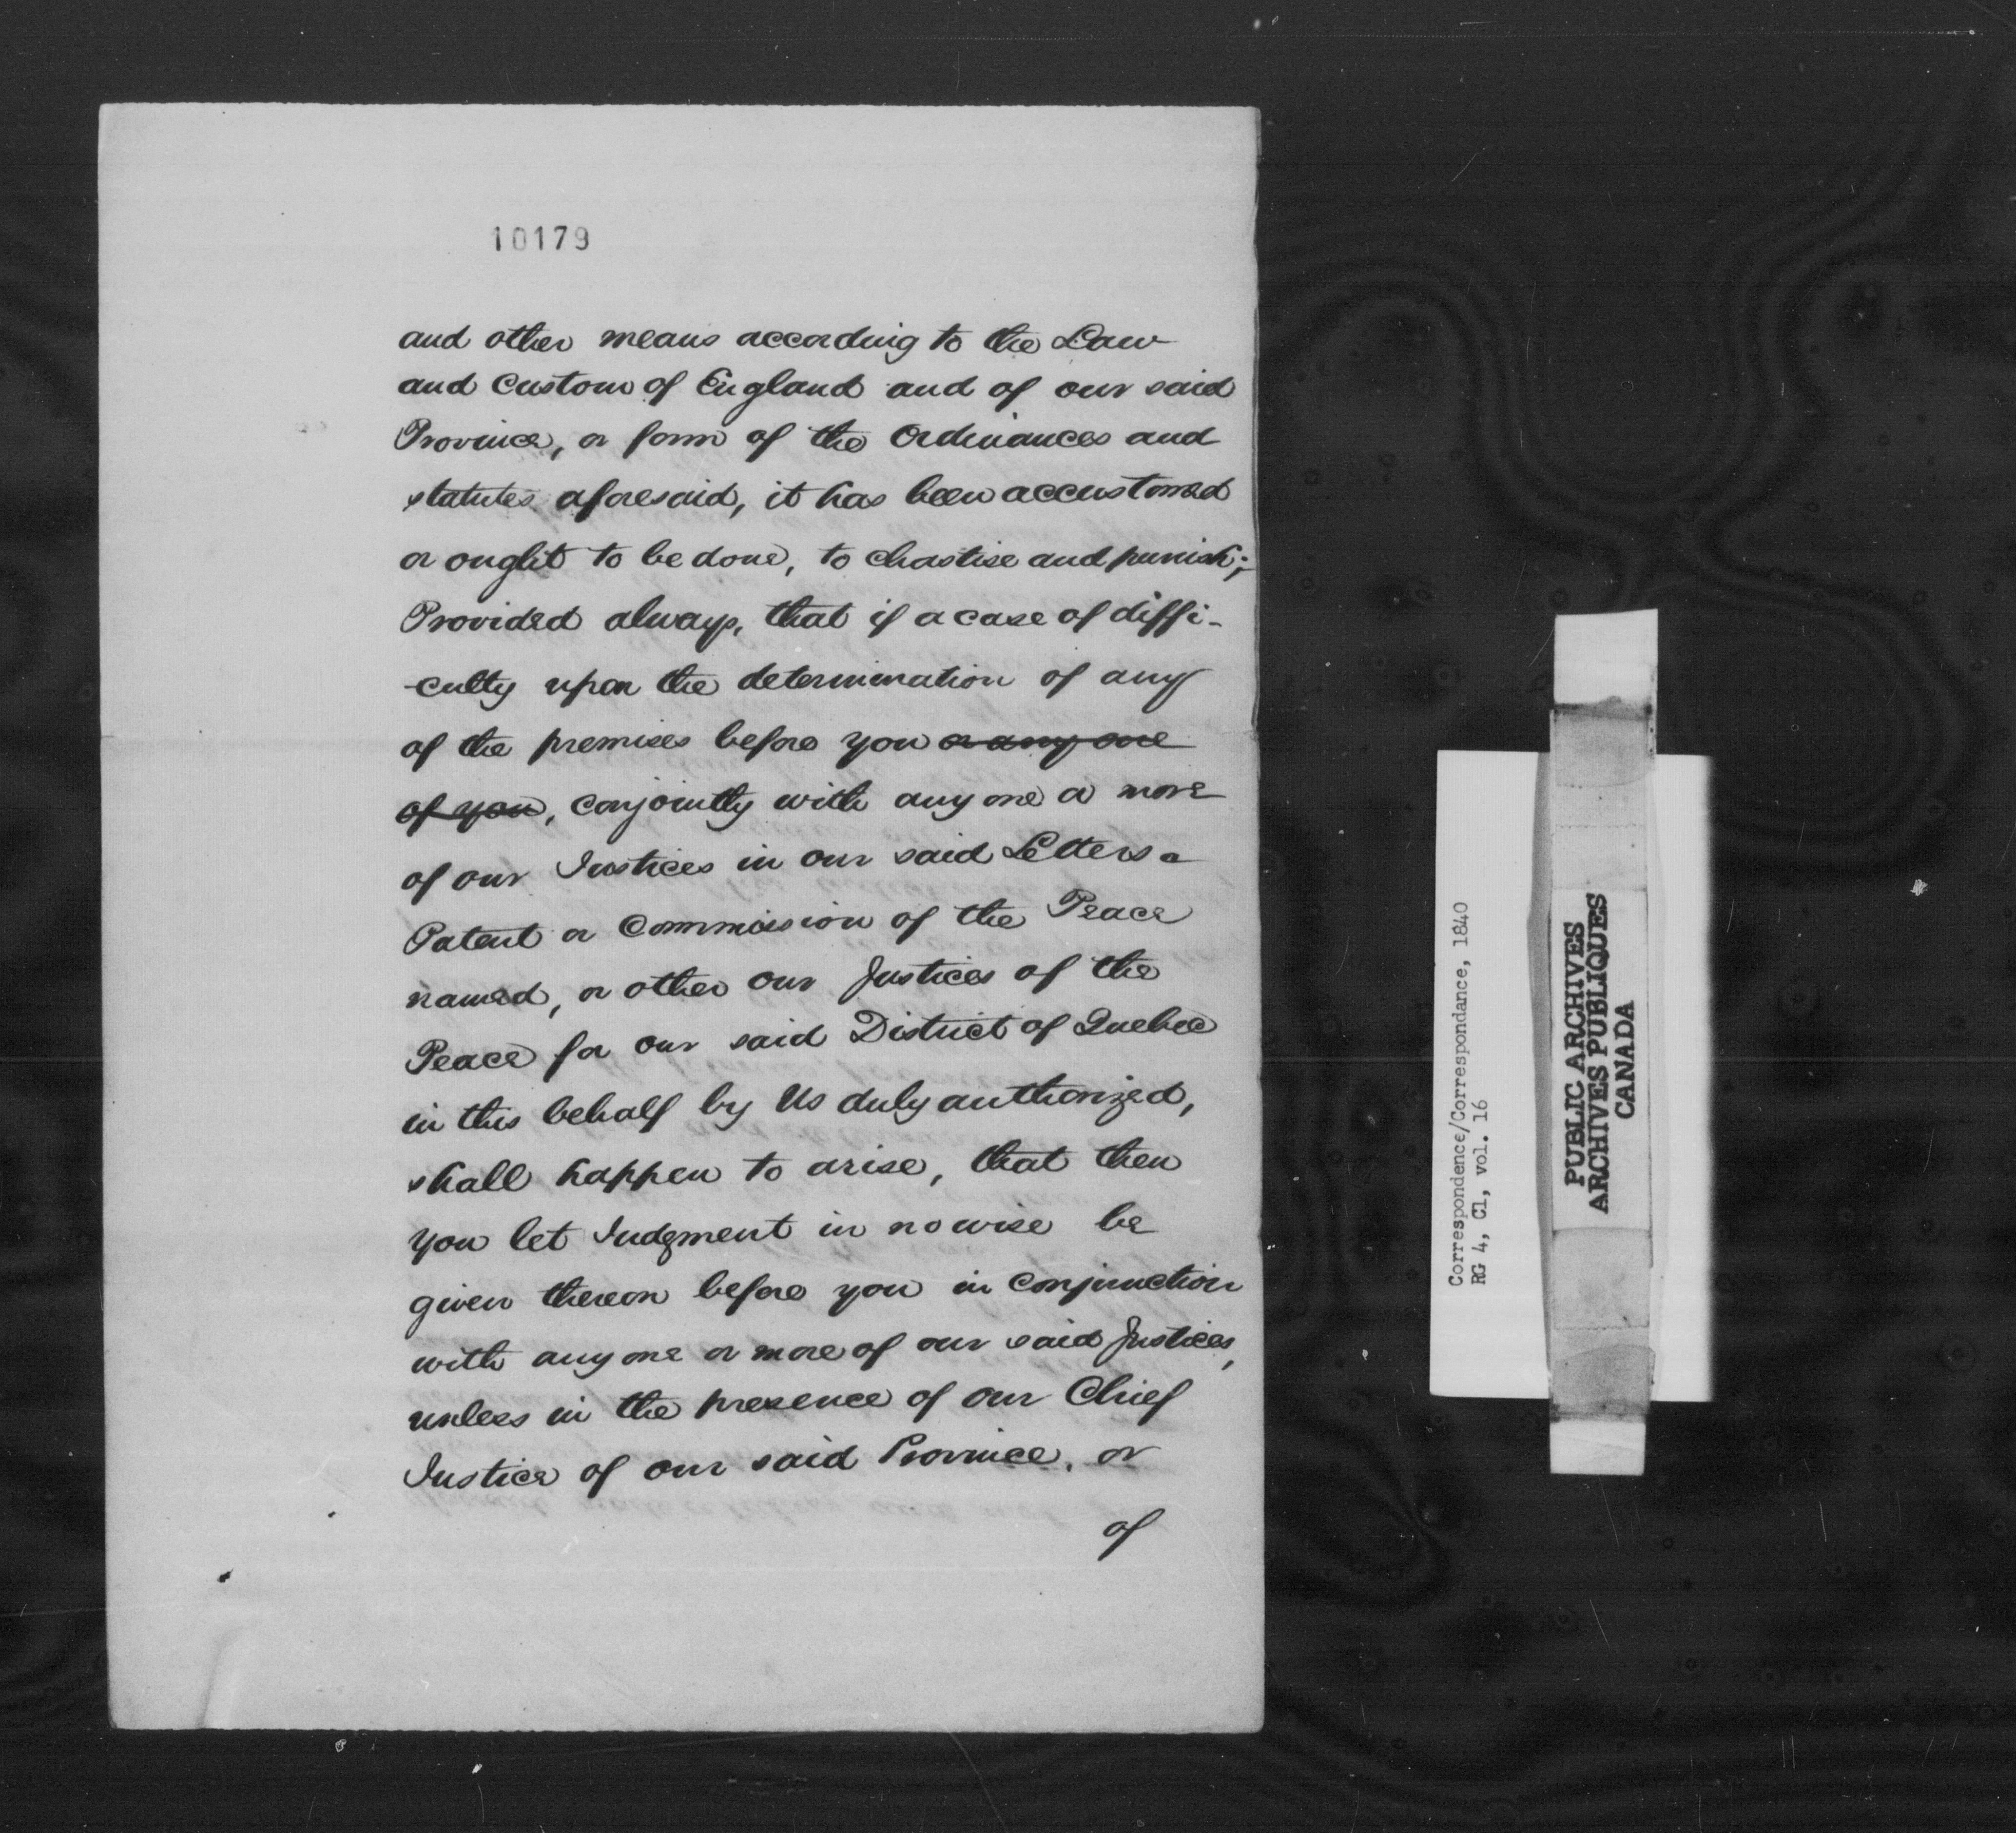 10179
and other means according to the Law
and Custom of England and of our said
Province, or form of the Ordinances and
statutes aforesaid, it has been accustomed
or ought to be done, to chastise and punish;
Provided always, that if a case of diffi-
-culty upon the determination of any
of the premises before you or any one
of you, conjointly with any one or more
of our Justices in our said Letters
Patent or Commission of the Peace
named, or other our Justices of the
Peace for our said District of Quebec
in this behalf by Us duly authorized,
shall happen to arise, that then
you let Judgment in nowise be
given thereon before you in conjunction
with any one or more of our said Justices,
unless in the presence of our Chief
Justice of our said Province, or
of
Correspondence/Correspondance, 1840
RG 4, C1, vol. 16
PUBLIC ARCHIVES
ARCHIVES PUBLIQUES
CANADA